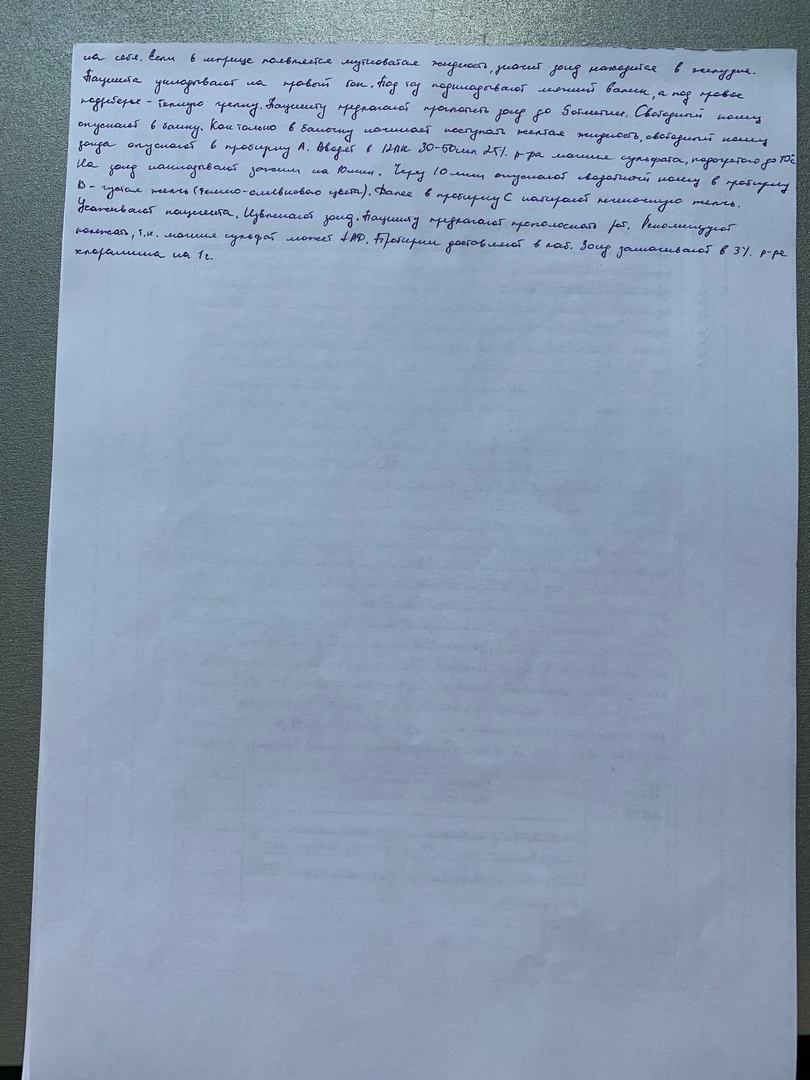 на себя. Если в шприце появляется мутноватая жидкость, значит зонд находится в желудке.
Пациента укладывают на правый бок. Под таз подкладывают мягкий валик, а под правое
подреберье - теплую грелку. Пациенту предлагают проглотить зонд до 9 отметки. Свободный конец
опускают в банку. Как только в баночку начинает поступать желтая жидкость, свободный конец
зонда опускают в пробирку А. Вводят в 12ПК 30-50мл 25% р-ра магния сульфата, подогретого до t°C
На зонд накладывают зажим на 10мин. Через 10 мин опускают свободный конец в пробирку
В - густая желчь (темно-оливкового цвета). Далее в пробирку С набирают печеночную желчь.
Усаживают пациента. Извлекают зонд. Пациенту предлагают прополоскать рот. Рекомендуют
полежать, т.к. магния сульфат может ↓АД. Пробирки доставляют в лаб. Зонд замачивают в 3% р-ре
хлорамина на 1ч.